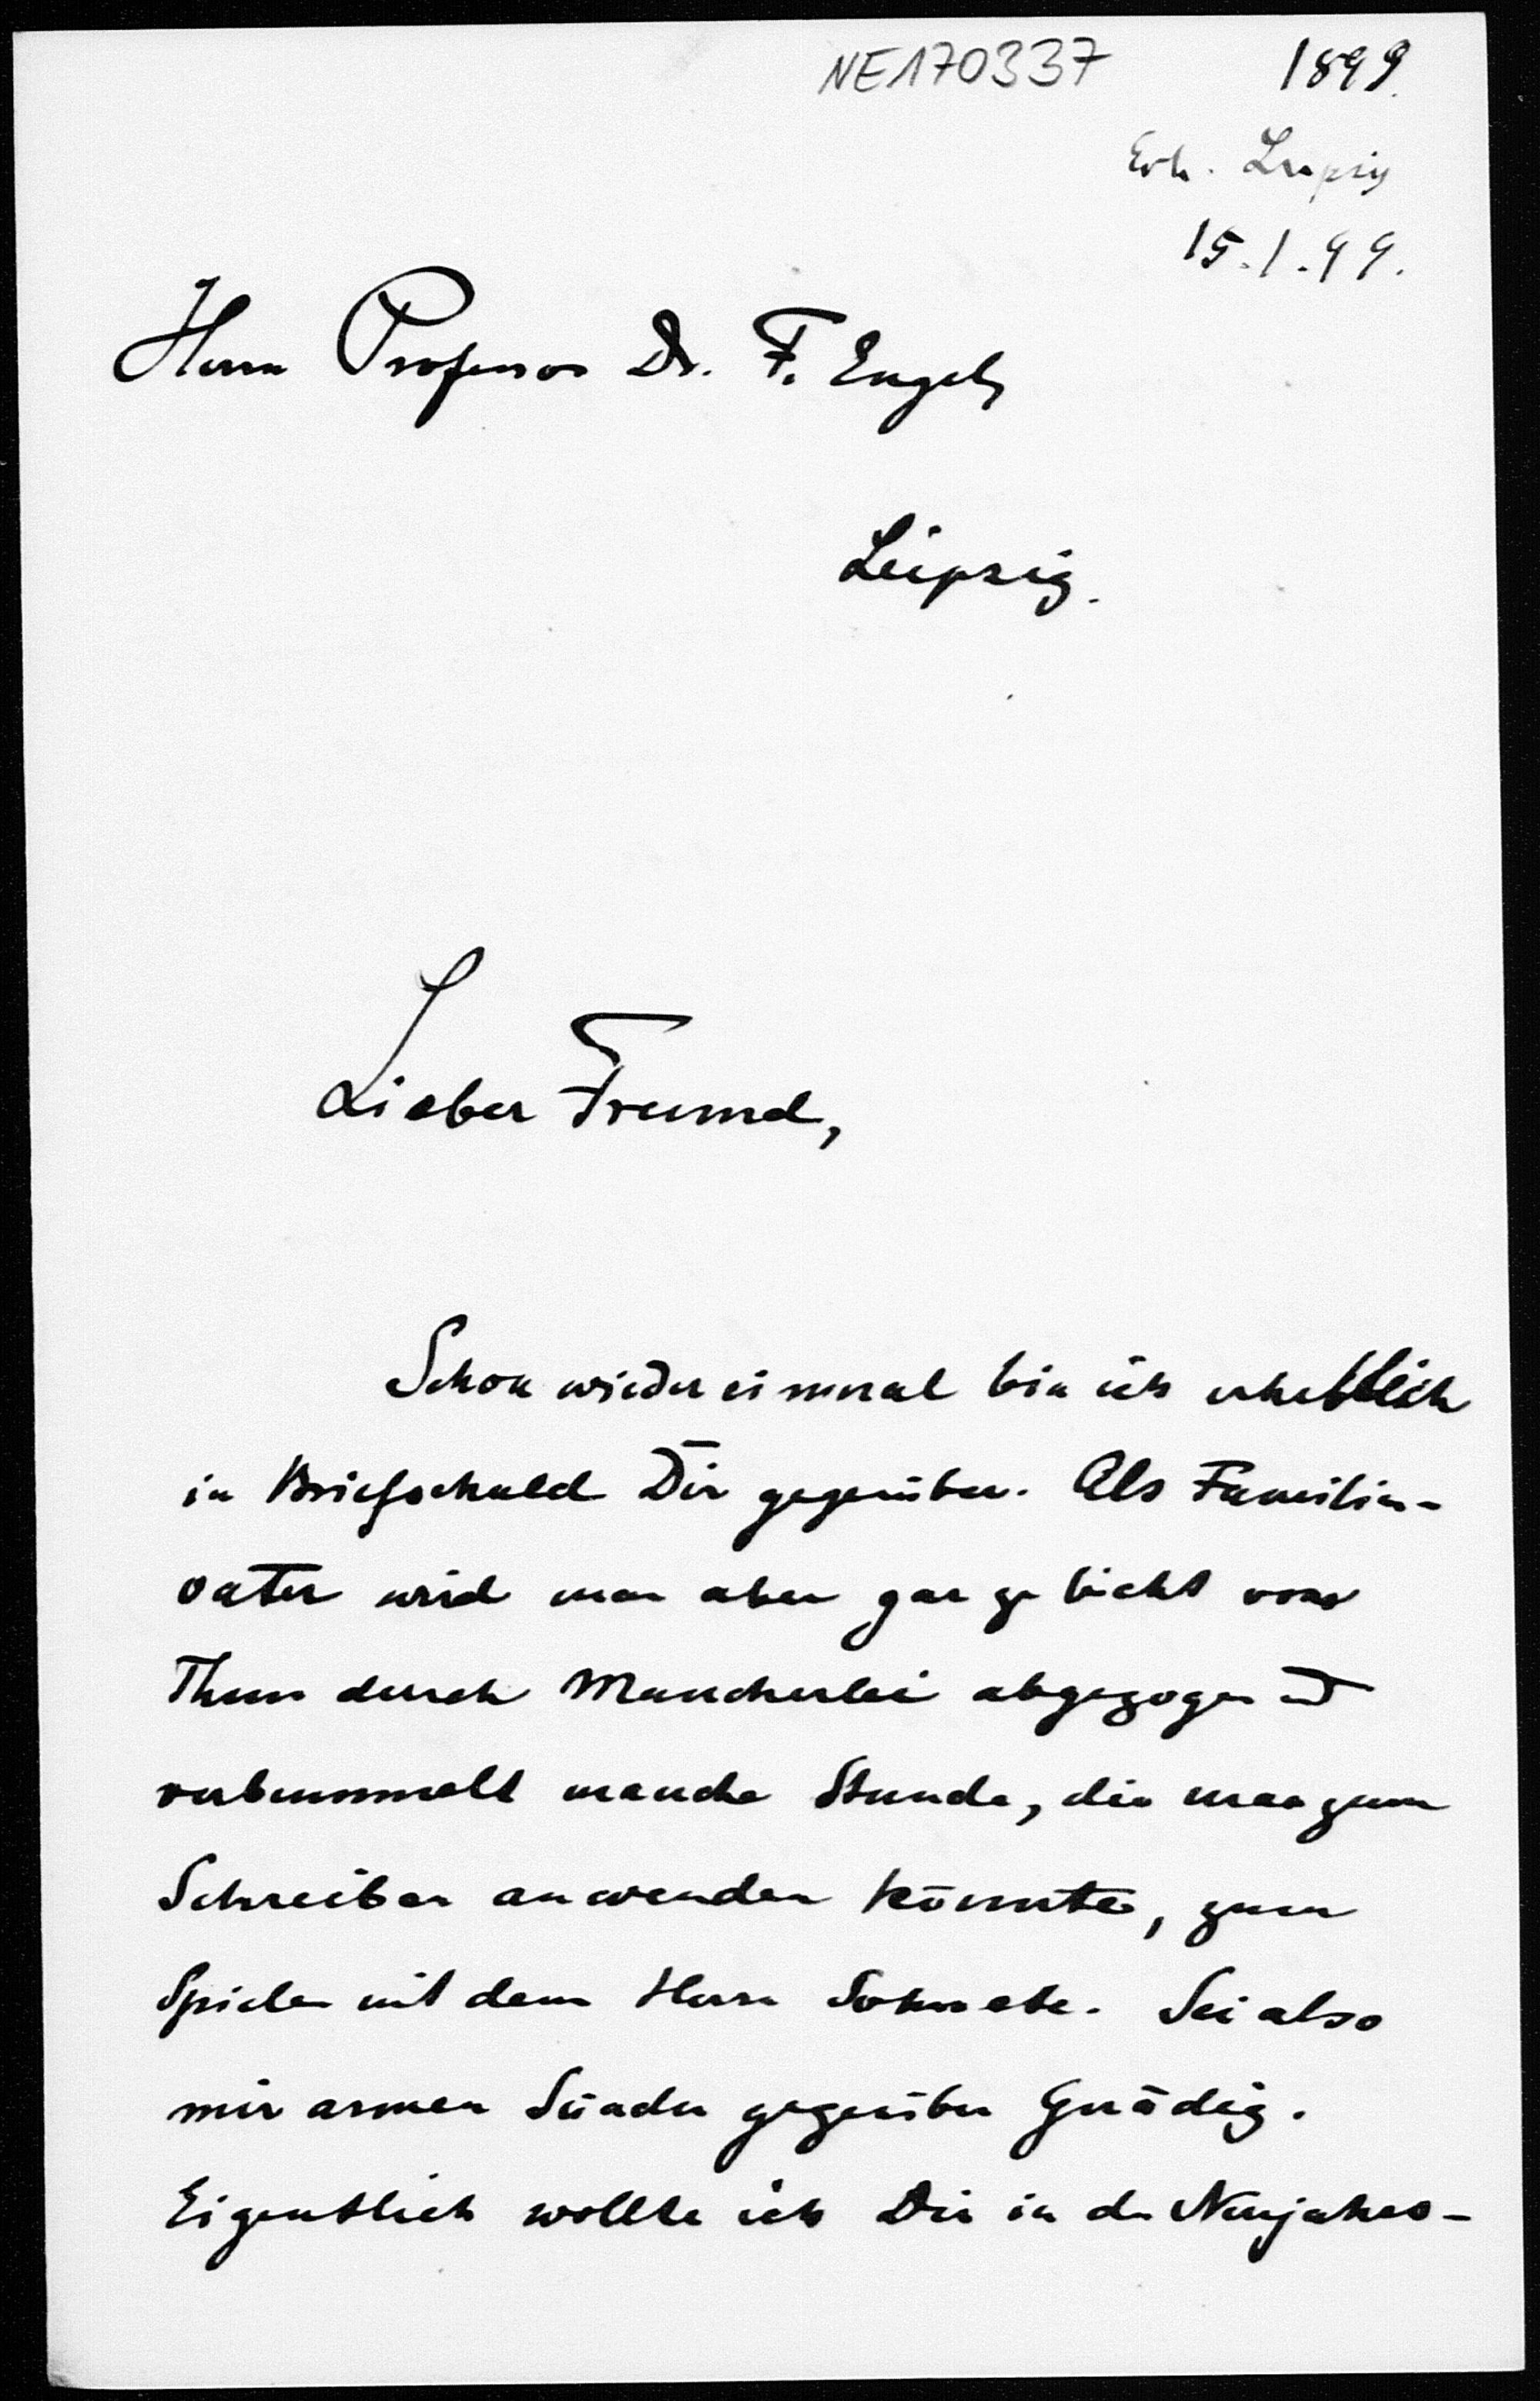 NE170337
1899.
Erh. Leipzig
15.1.99.
Herrn Professor Dr. F. Engel,
Leipzig.
Lieber Freund,
Schon wieder einmal bin ich erheblich
in Briefschuld Dir gegenüber. Als Familien-
vater wird man aber gar zu leicht vom
Thun durch Mancherlei abgezogen und
verbummelt manche Stunde, die man zum
Schreiben anwenden könnte, zum
Spielen mit dem Herrn Sohn etc. Sei also
mir armen Sünder gegenüber Gnädig.
Eigentlich wollte ich Dir in den Neujahrs-